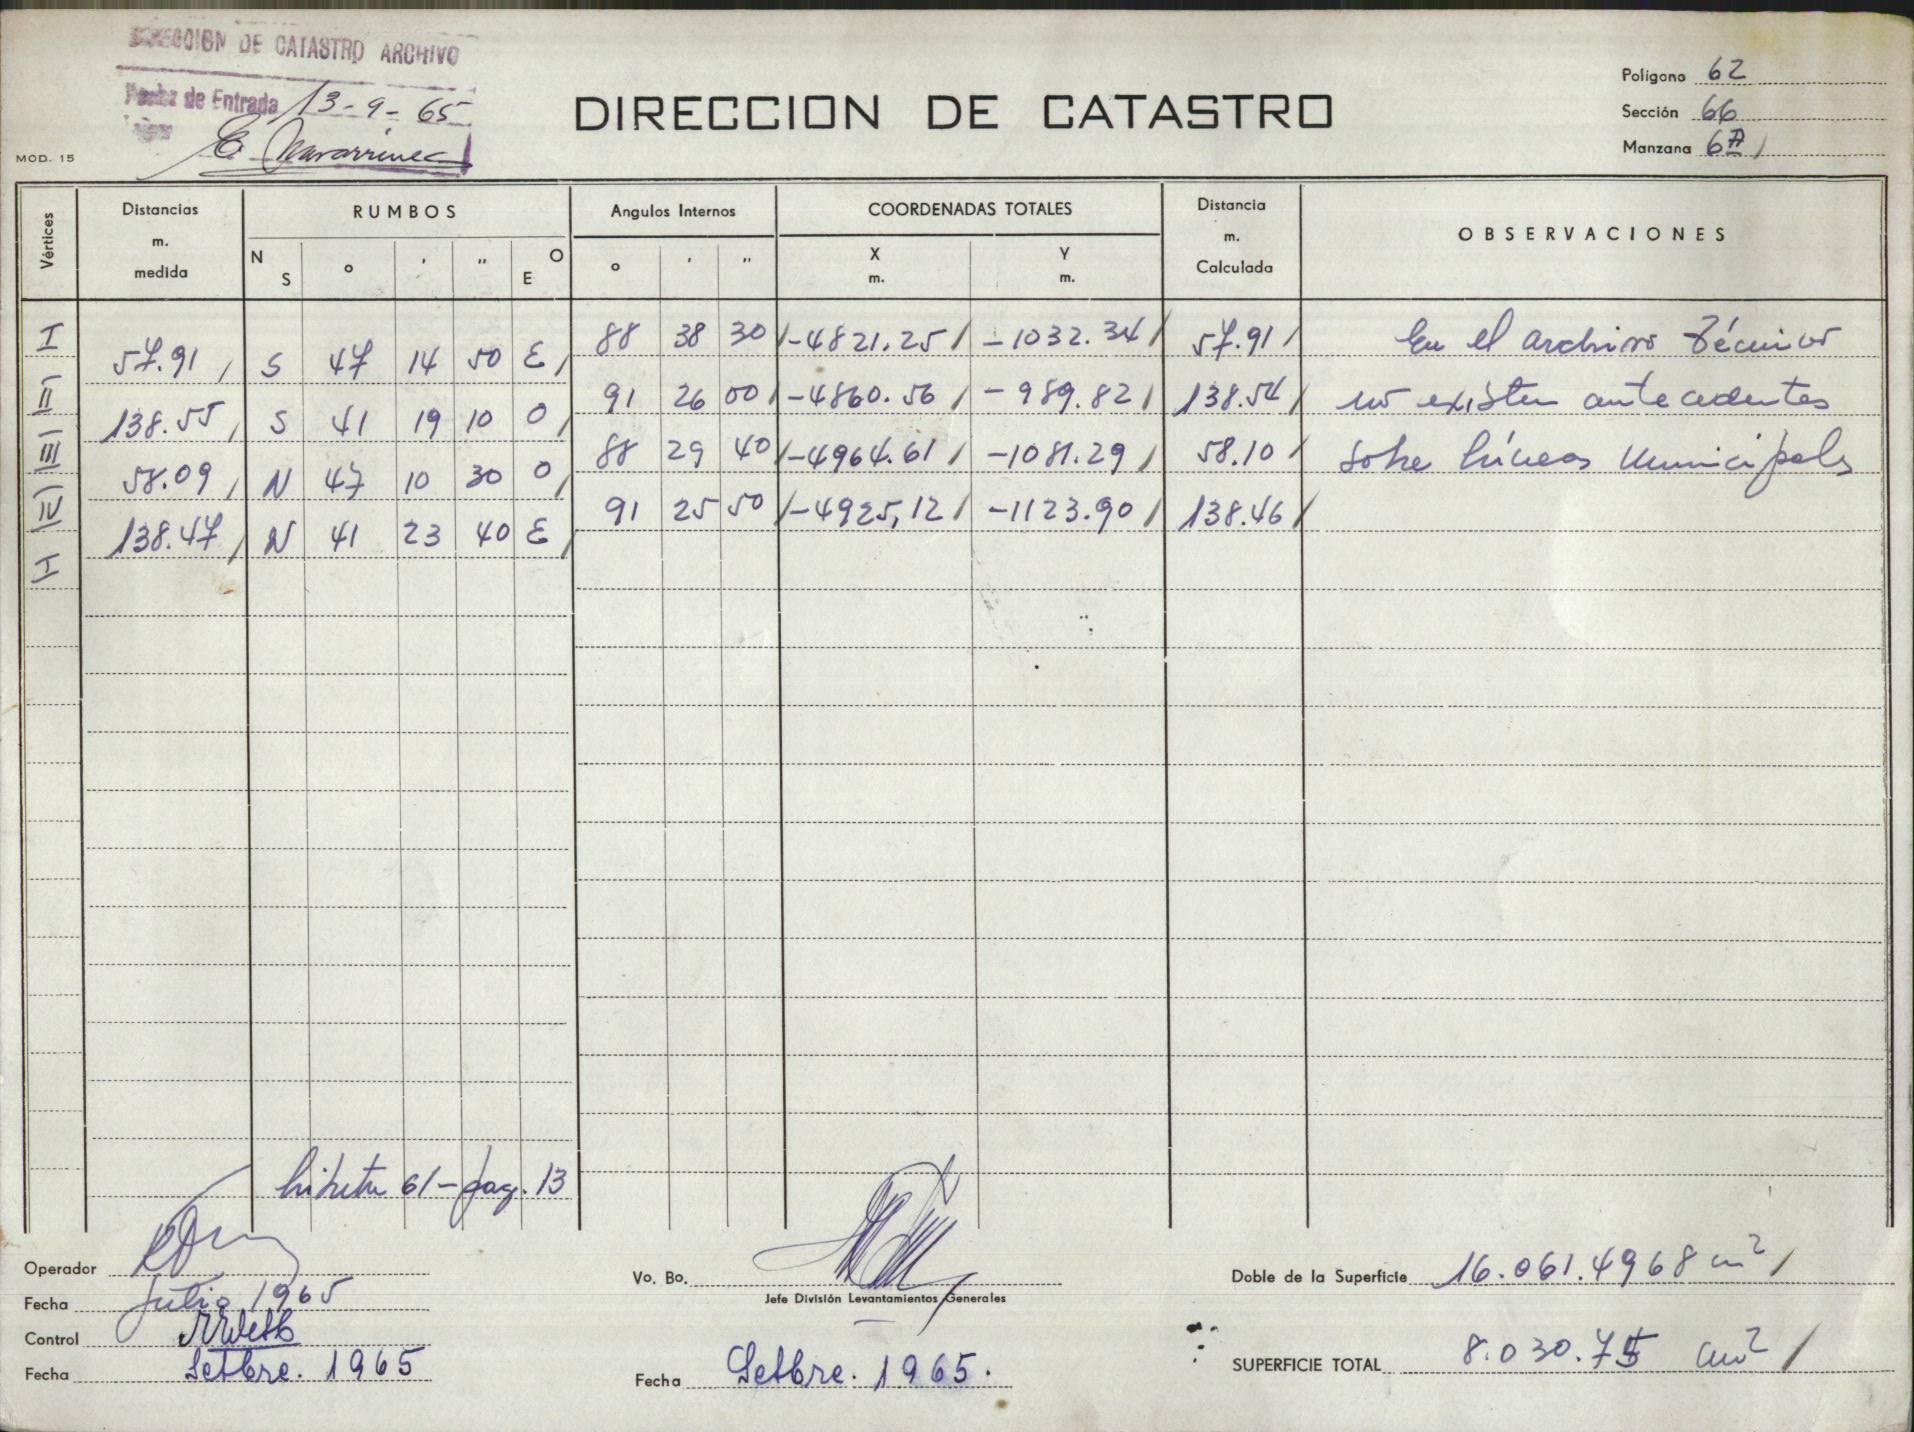 DIRECCION DE CATASTRO ARCHIVO
Fecha de Entrada 13-9-65
MOD. 15
DIRECCION DE CATASTRO
Polígono 62
Sección 66
Manzana 6
Vértices
Distancias m. medida
RUMBOS
N S ° ' " O E
Angulos Internos
° ' "
COORDENADAS TOTALES
X m. Y m.
Distancia m. Calculada
OBSERVACIONES
I 88 38 30 -4821.25 -1032.34 57.91 En el archivo técnico
57.91 S 47 14 50 E
II 91 26 00 -4860.56 -989.82 138.54 no existen antecedentes
138.55 S 41 19 10 O
III 88 29 40 -4964.61 -1081.29 58.10 sobre líneas Municipales
58.09 N 47 10 30 O
IV 91 25 50 -4925,12 -1123.90 138.46
138.47 N 41 23 40 E
I
libreta 61- pag. 13
Operador
Fecha Julio 1965
Control
Fecha Setbre. 1965
Vo. Bo.
Jefe División Levantamientos Generales
Fecha Setbre. 1965.
Doble de la Superficie 16.061.4968 m²
SUPERFICIE TOTAL 8.030.75 m²